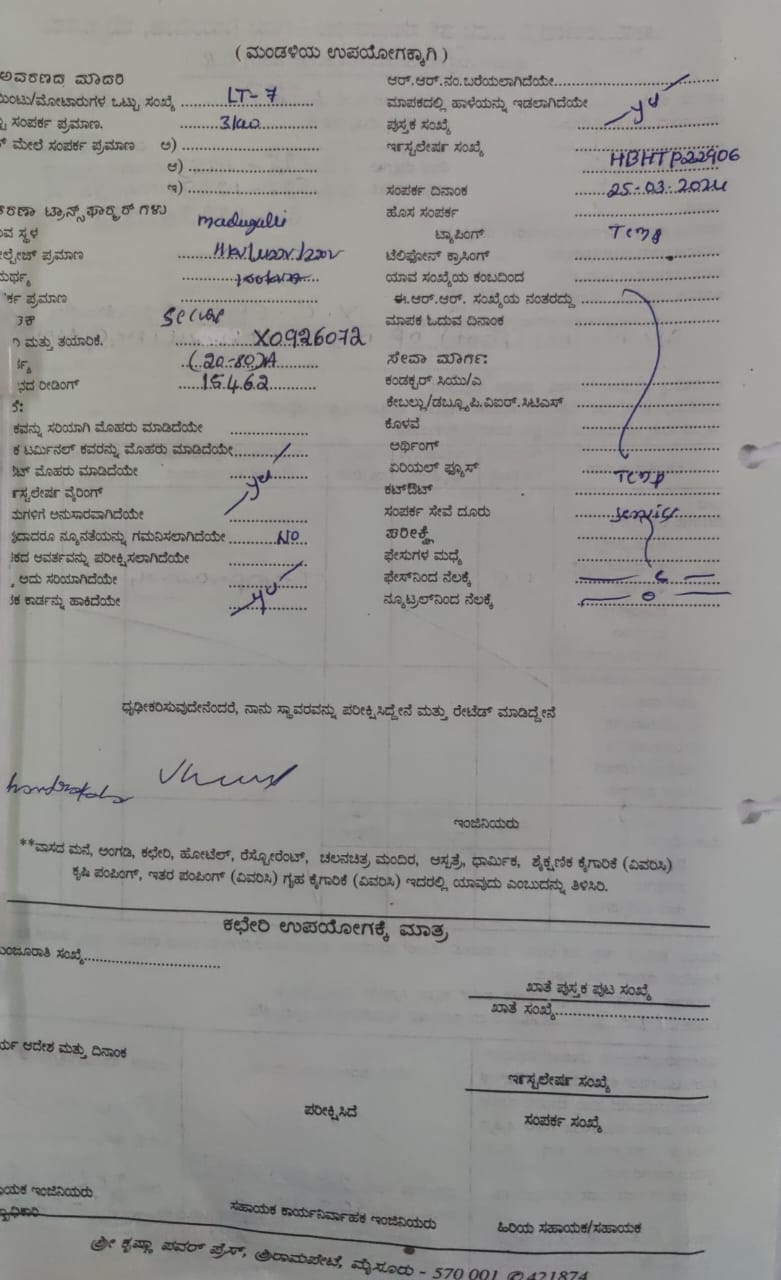 ( ಮಂಡಳಿಯ ಉಪಯೋಗಕ್ಕಾಗಿ )
ಅವರಣದ ಮಾದರಿ
ಯಿಂಟು/ಮೋಟಾರುಗಳ ಒಟ್ಟು ಸಂಖ್ಯೆ LT-7
ಸಂಪರ್ಕ ಪ್ರಮಾಣ.
ಮೇಲೆ ಸಂಪರ್ಕ ಪ್ರಮಾಣ ಅ)
ಆ)
ಇ)
ಕರಣಾ ಟ್ರಾನ್ಸ್‌ಫಾರ್‍ಮರ್ ಗಳು
ವ ಸ್ಥಳ
ಲ್ಟೇಜ್ ಪ್ರಮಾಣ
ಪ್ರಮಾಣ
ಮತ್ತು ತಯಾರಿಕೆ. X0926072
(20-80)A
ನದ ರೀಡಿಂಗ್ 15462
ಕವನ್ನು ಸರಿಯಾಗಿ ಮೊಹರು ಮಾಡಿದೆಯೇ
ಕ ಟರ್ಮಿನಲ್ ಕವರನ್ನು ಮೊಹರು ಮಾಡಿದೆಯೇ
ಮೊಹರು ಮಾಡಿದೆಯೇ
ಸ್ಟಲೇರ್ಷ ವೈರಿಂಗ್
ಮಗಳಿಗೆ ಅನುಸಾರವಾಗಿದೆಯೇ
ದಾದರೂ ನ್ಯೂನತೆಯನ್ನು ಗಮನಿಸಲಾಗಿದೆಯೇ NO
ಕದ ಆವರ್ತವನ್ನು ಪರೀಕ್ಷಿಸಲಾಗಿದೆಯೇ
, ಅದು ಸರಿಯಾಗಿದೆಯೇ
ಕ ಕಾರ್ಡನ್ನು ಹಾಕಿದೆಯೇ
ಆರ್.ಆರ್.ನಂ.ಬರೆಯಲಾಗಿದೆಯೇ
ಮಾಪಕದಲ್ಲಿ ಹಾಳೆಯನ್ನು ಇಡಲಾಗಿದೆಯೇ
ಪುಸ್ತಕ ಸಂಖ್ಯೆ
ಇರ್ನ್ಸ್ಟಲೇರ್ಷ ಸಂಖ್ಯೆ HBHTP22906
ಸಂಪರ್ಕ ದಿನಾಂಕ 25-03-2024
ಹೊಸ ಸಂಪರ್ಕ
ಟ್ಯಾಪಿಂಗ್ Temp
ಟೆಲಿಫೋನ್ ಕ್ರಾಸಿಂಗ್
ಯಾವ ಸಂಖ್ಯೆಯ ಕಂಬದಿಂದ
ಈ.ಆರ್.ಆರ್. ಸಂಖ್ಯೆಯ ನಂತರದ್ದು
ಮಾಪಕ ಓದುವ ದಿನಾಂಕ
ಸೇವಾ ಮಾರ್ಗ:
ಕಂಡಕ್ಟರ್ ಸಿಯು/ಎ
ಕೇಬಲ್ಲು/ಡಬ್ಲ್ಯೂಪಿ.ವಿಐರ್.ಸಿಟಿಎಸ್
ಕೊಳವೆ
ಅರ್ಥಿಂಗ್
ಏರಿಯಲ್ ಫ್ಯೂಸ್ Temp
ಕಟ್‌ಔಟ್
ಸಂಪರ್ಕ ಸೇವೆ ದೂರು service
ಪರೀಕ್ಷೆ
ಫೇಸುಗಳ ಮಧ್ಯೆ
ಫೇಸ್‌ನಿಂದ ನೆಲಕ್ಕೆ
ನ್ಯೂಟ್ರಲ್‌ನಿಂದ ನೆಲಕ್ಕೆ
ಧೃಢೀಕರಿಸುವುದೇನೆಂದರೆ, ನಾನು ಸ್ಥಾವರವನ್ನು ಪರೀಕ್ಷಿಸಿದ್ದೇನೆ ಮತ್ತು ರೇಟೆಡ್ ಮಾಡಿದ್ದೇನೆ
ಇಂಜಿನಿಯರು
**ವಾಸದ ಮನೆ, ಅಂಗಡಿ, ಕಛೇರಿ, ಹೋಟೆಲ್, ರೆಸ್ಟೋರೆಂಟ್, ಚಲನಚಿತ್ರ ಮಂದಿರ, ಆಸ್ಪತ್ರೆ, ಧಾರ್ಮಿಕ, ಶೈಕ್ಷಣಿಕ ಕೈಗಾರಿಕೆ (ವಿವರಿಸಿ)
ಕೃಷಿ ಪಂಪಿಂಗ್, ಇತರ ಪಂಪಿಂಗ್ (ವಿವರಿಸಿ) ಗೃಹ ಕೈಗಾರಿಕೆ (ವಿವರಿಸಿ) ಇದರಲ್ಲಿ ಯಾವುದು ಎಂಬುದನ್ನು ತಿಳಿಸಿರಿ.
ಕಛೇರಿ ಉಪಯೋಗಕ್ಕೆ ಮಾತ್ರ
ಮಂಜೂರಾತಿ ಸಂಖ್ಯೆ
ಖಾತೆ ಪುಸ್ತಕ ಪುಟ ಸಂಖ್ಯೆ
ಖಾತೆ ಸಂಖ್ಯೆ
ರ್ಯ ಆದೇಶ ಮತ್ತು ದಿನಾಂಕ
ಇರ್ನ್ಸ್ಟಲೇರ್ಷ ಸಂಖ್ಯೆ
ಪರೀಕ್ಷಿಸಿದೆ
ಸಂಪರ್ಕ ಸಂಖ್ಯೆ
ಯಕ ಇಂಜಿನಿಯರು
ಸಹಾಯಕ ಕಾರ್ಯನಿರ್ವಾಹಕ ಇಂಜಿನಿಯರು
ಹಿರಿಯ ಸಹಾಯಕ/ಸಹಾಯಕ
ಶ್ರೀ ಕೃಷ್ಣಾ ಪವರ್ ಪ್ರೆಸ್, ಶ್ರೀರಾಮಪೇಟೆ, ಮೈಸೂರು - 570 001 ✆421874